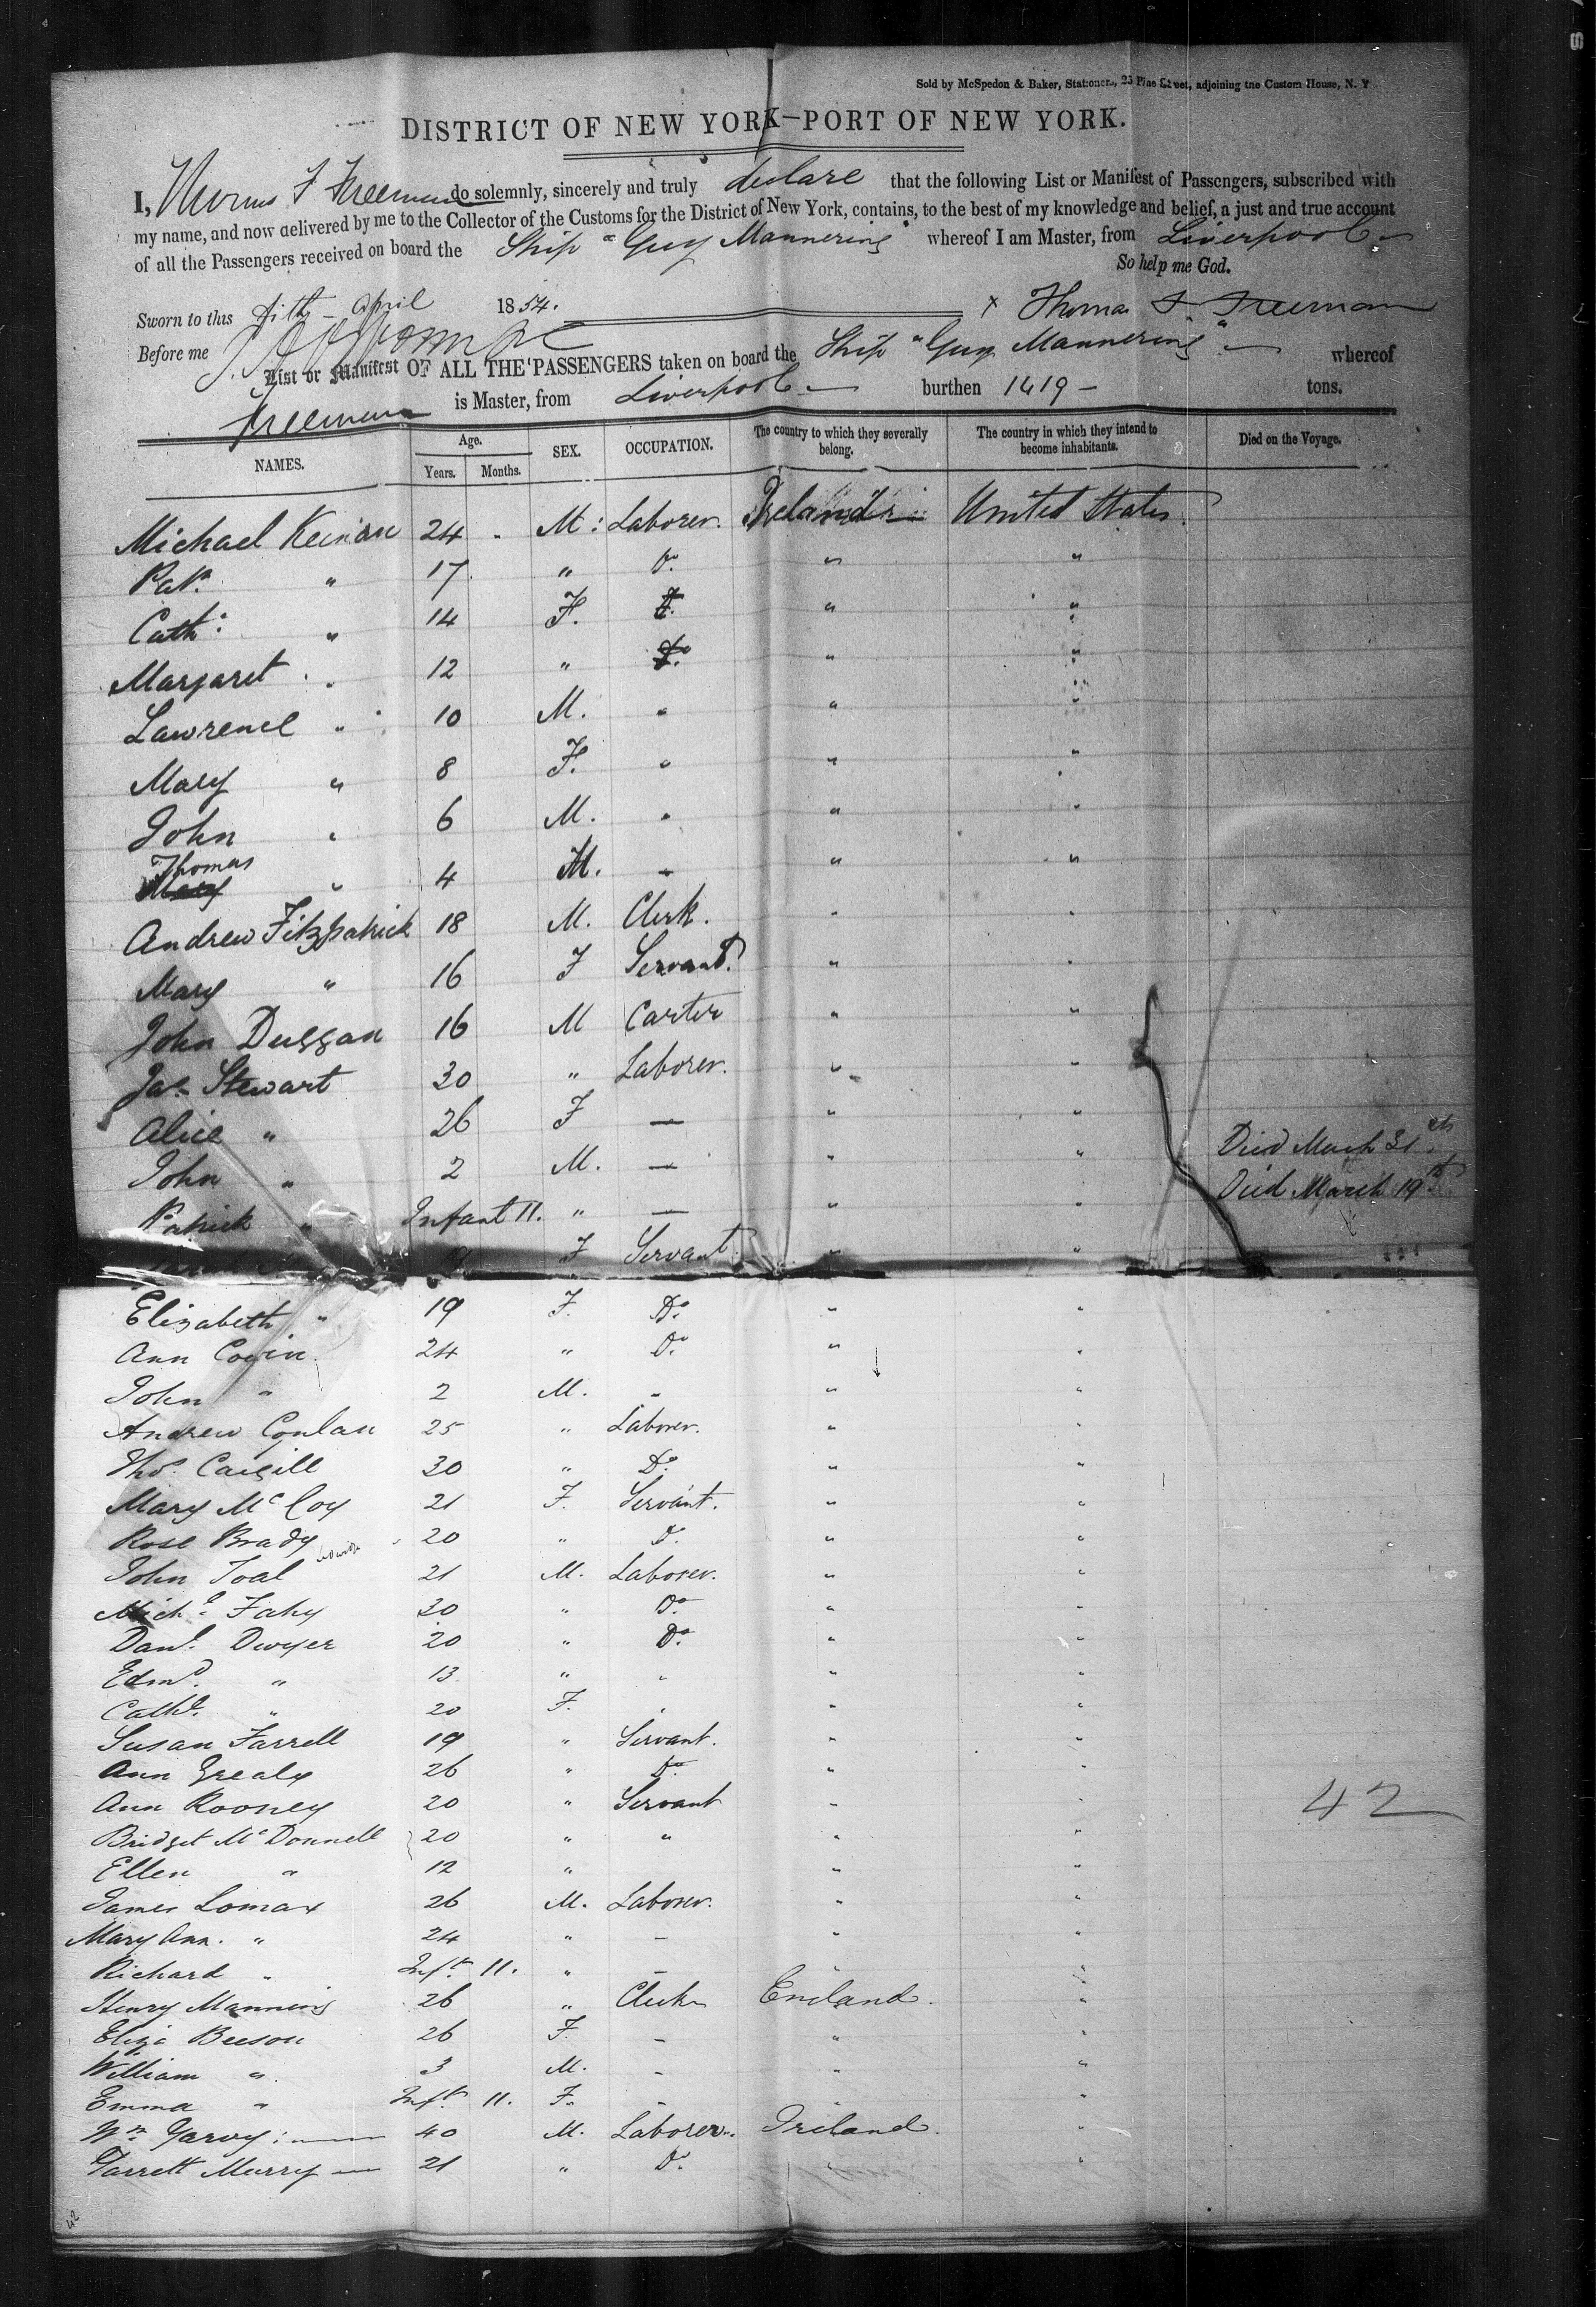 Sold by McSpedon & Baker, Stationers, 25 Pine Street, adjoining the Custom House, N. Y
DISTRICT OF NEW YORK—PORT OF NEW YORK.
I, Thomas F Freeman do solemnly, sincerely and truly declare that the following List or Manifest of Passengers, subscribed with
my name, and now delivered by me to the Collector of the Customs for the District of New York, contains, to the best of my knowledge and belief, a just and true account
of all the Passengers received on board the Ship "Guy Mannering" whereof I am Master, from Liverpool
So help me God.
Sworn to this April 1854. x Thomas F. Freeman
Before me
List or Manifest OF ALL THE PASSENGERS taken on board the Ship "Guy Mannering" whereof
Freeman is Master, from Liverpool burthen 1419 tons.
NAMES. Age. Years. Months. SEX. OCCUPATION. The country to which they severally belong. The country in which they intend to become inhabitants. Died on the Voyage.
Michael Keenan 24 M: Laborer. Ireland United States.
Patk. " 17 " Do. " "
Cath: " 14 F. " "
Margaret " 12 " " "
Lawrence " 10 M. " " "
Mary " 8 F. " " "
John " 6 M. " " "
Thomas " 4 M. - " "
Andrew Fitzpatrick 18 M. Clerk. " "
Mary " 16 F Servant. " "
John Duggan 16 M Carter " "
Jas. Stewart 30 " Laborer. " "
Alice " 26 F — " "
John " 2 M. — " " Died March 31st
Patrick " Infant 11. " — " " Died March 19th
F Servant " "
Elizabeth " 19 F. Do. " "
Ann 24 " Do. " "
John " 2 M. " " "
Andrew Conlan 25 " Laborer. " "
Thos. Cargill 30 " Do. " "
Mary McCoy 21 F. Servant. " "
Rose Brady 20 " Do. " "
John Toal 21 M. Laborer. " "
Michl. Fahy 30 " Do. " "
Danl. Dwyer 20 " Do. " "
Edmd. " 13 " " " "
Cathe. " 20 F. " " "
Susan Farrell 19 " Servant. " "
Ann Grealy 26 " Do. " "
Ann Rooney 20 " Servant " "
42
Bridget McDonnell 20 " " " "
Ellen " 12 " " "
James Lomax 26 M. Laborer. " "
Mary Ann. " 24 " - " "
Richard " Inft. 11. " - " "
Henry Manning 26 " Clerk England. "
Eliza Beeson 26 F. - " "
William " 3 M. - " "
Emma " Inft. 11. F. - " "
Wm. Garvy: 40 M. Laborer. Ireland. "
Garrett Murry 21 " Do. " "
42